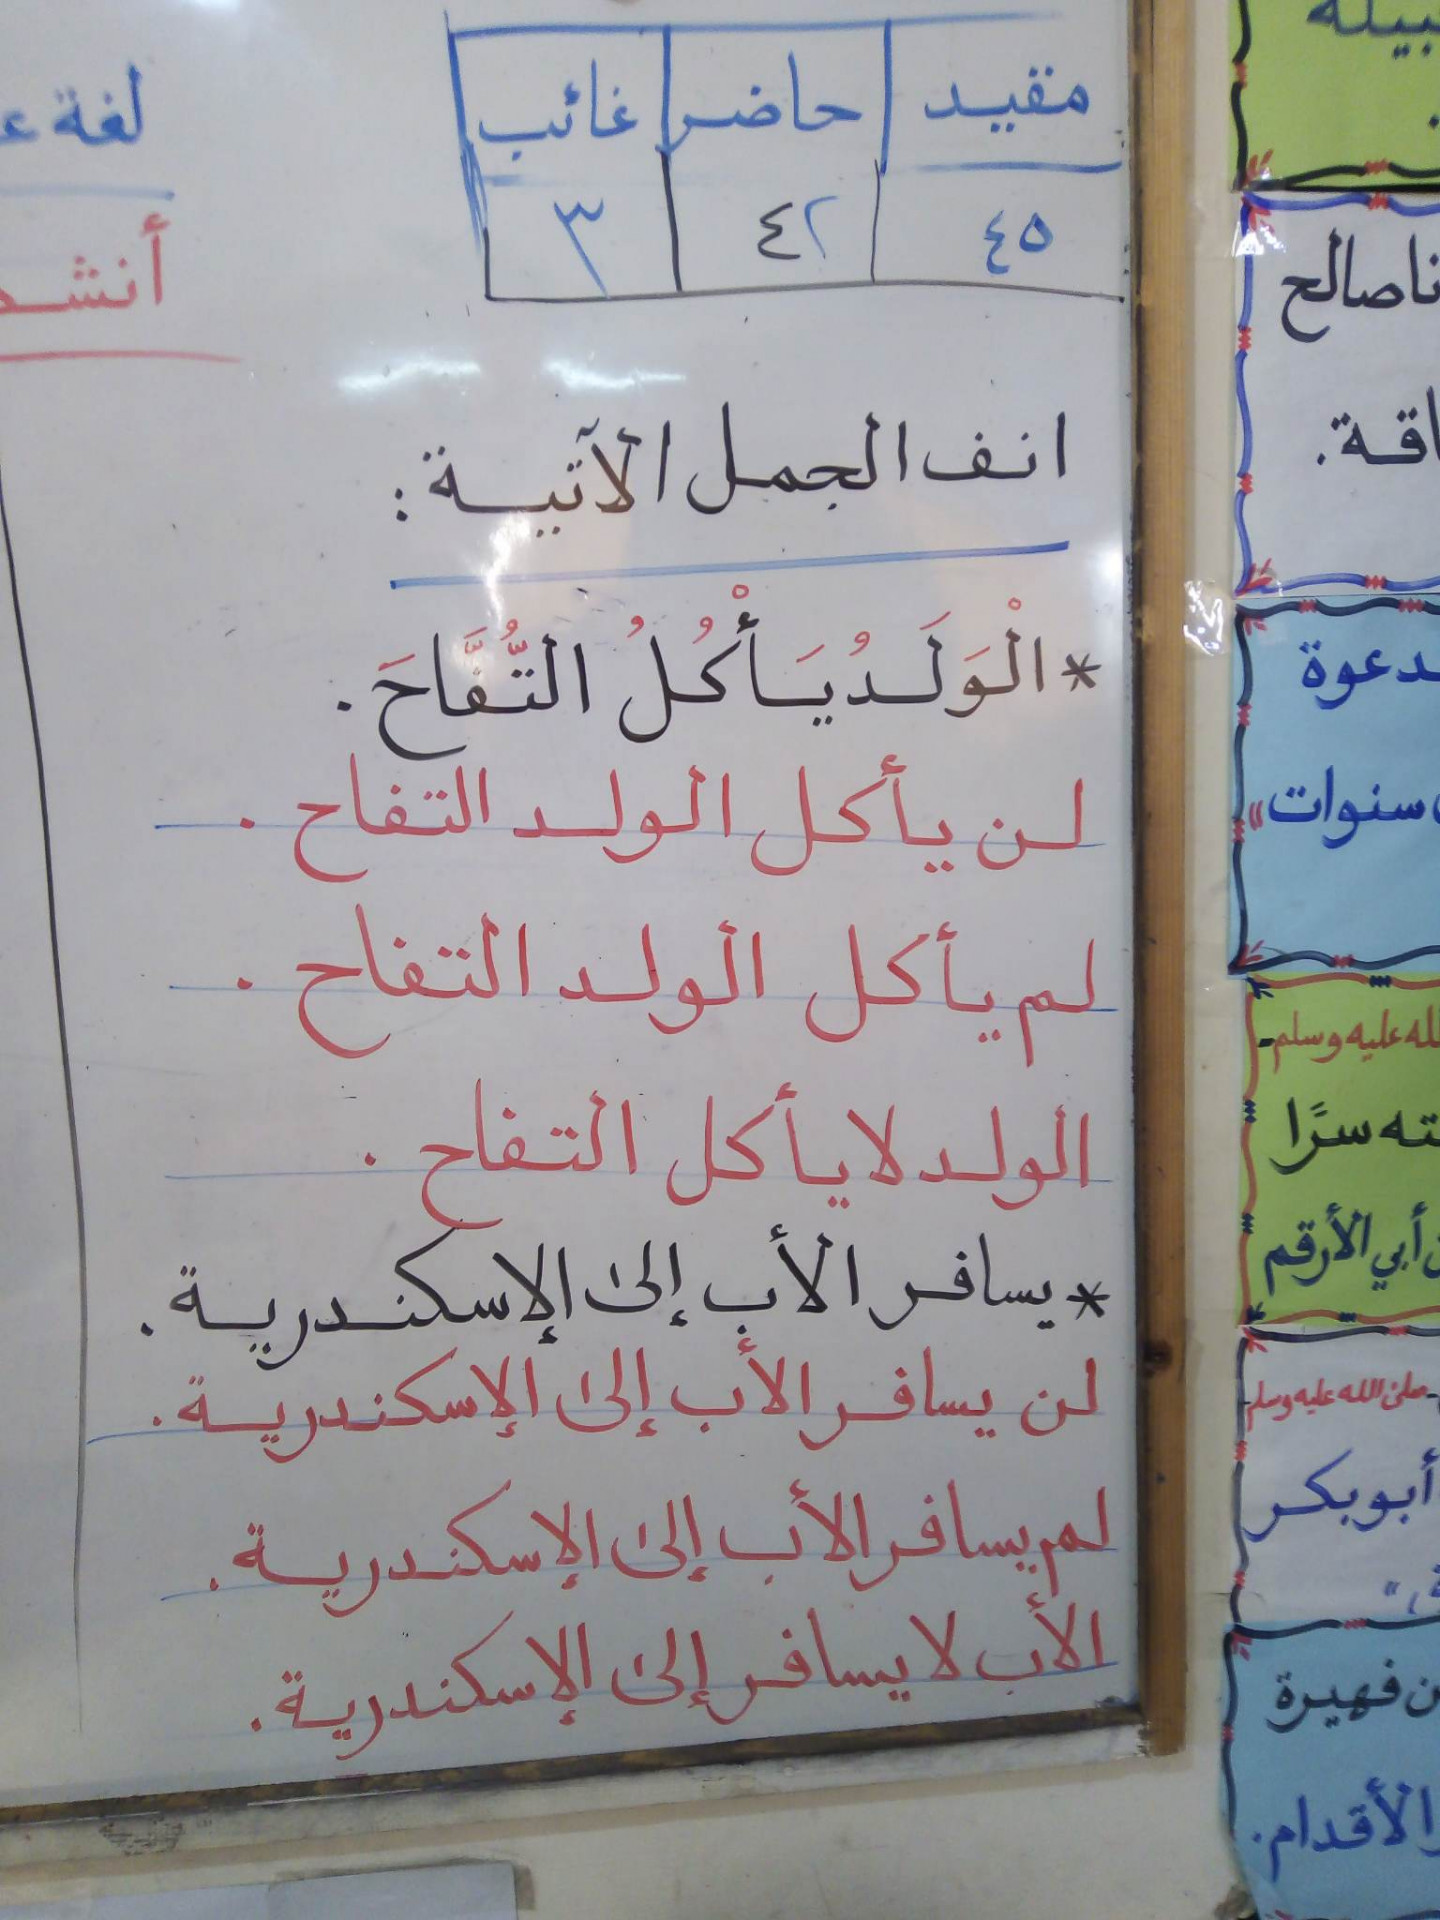 مقيد حاضر غائب
٤٥ ٤٢ ٣
لغة
انف الجمل الآتية :
* الْوَلَدُ يَأْكُلُ التُّفَّاحَ .
لن يأكل الولد التفاح .
لم يأكل الولد التفاح .
الولد لا يأكل التفاح .
* يسافر الأب إلى الإسكندرية .
لن يسافر الأب إلى الإسكندرية .
لم يسافر الأب إلى الإسكندرية .
الأب لا يسافر إلى الإسكندرية .
صالح
سنوات"
الله عليه وسلم-
سرًا
أبي الأرقم
-صلى الله عليه وسلم-
أبو بكر
فهيرة
الأقدام .